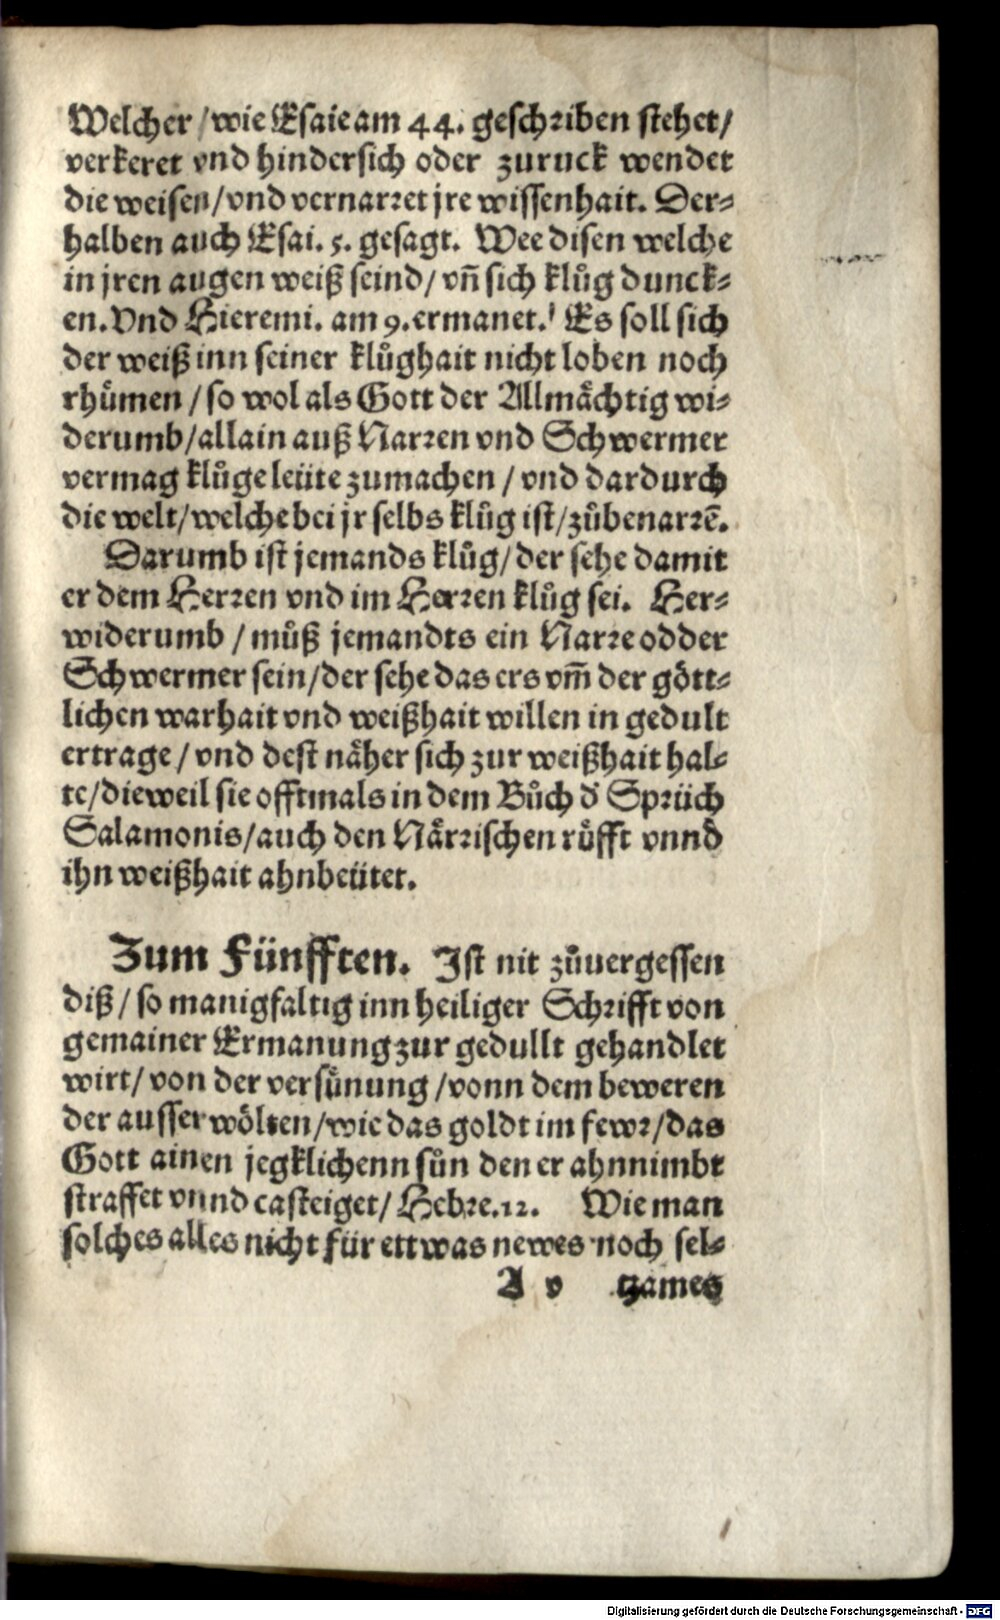 Welcher / wie Esaie am 44. geschriben stehet /
verkeret vnd hindersich oder zuruck wendet
die weisen / vnd vernarret jre wissenhait. Der⸗
halben auch Esai. 5. gesagt. Wee disen welche
in jren augen weiß seind / vñ sich klůg dunck⸗
en. Vnd Hieremi. am 9. ermanet. Es soll sich
der weiß inn seiner klůghait nicht loben noch
rhůmen / so wol als Gott der Allmåchtig wi⸗
derumb / allain auß Narren vnd Schwermer
vermag klůge leüte zumachen / vnd dardurch
die welt / welche bei jr selbs klůg ist / zůbenarrẽ.
Darumb ist jemands klůg / der sehe damit
er dem Herren vnd im Herren klůg sei. Her⸗
widerumb / můß jemandts ein Narre odder
Schwermer sein / der sehe das ers vm̃ der gött⸗
lichen warhait vnd weißhait willen in gedult
ertrage / vnd dest nåher sich zur weißhait hal⸗
te / dieweil sie offtmals in dem Bůch d' Sprüch
Salamonis / auch den Nårrischen růfft vnnd
ihn weißhait ahnbeütet.
Zum Fünfften. Ist nit zůuergessen
diß / so manigfaltig inn heiliger Schrifft von
gemainer Ermanung zur gedullt gehandlet
wirt / von der versůnung / vonn dem beweren
der ausserwölten / wie das goldt im fewr / das
Gott ainen jegklichenn sůn den er ahnnimbt
straffet vnnd casteiget / Hebre. 12. Wie man
solches alles nicht für ettwas newes noch sel⸗
A v tzames
Digitalisierung gefördert durch die Deutsche Forschungsgemeinschaft - DFG